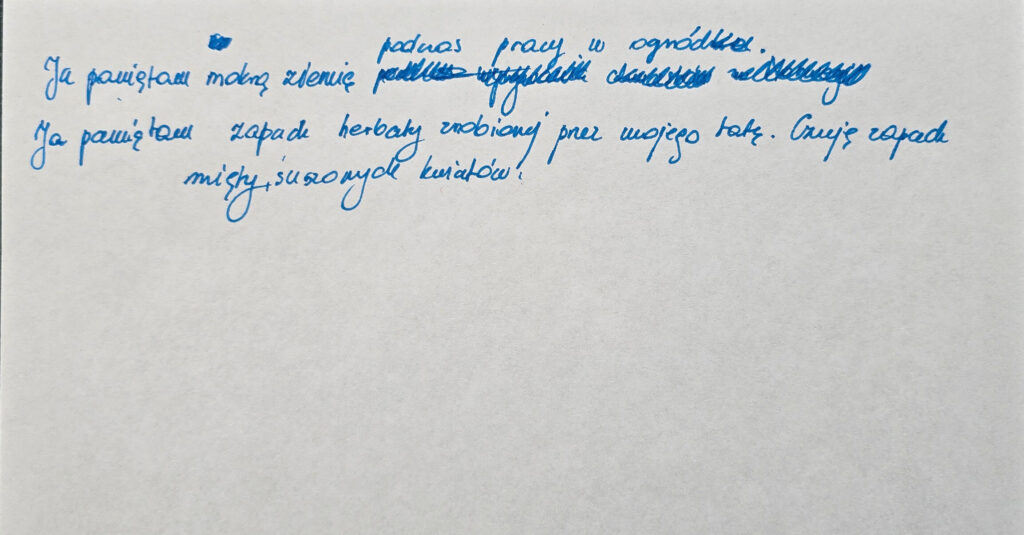 podczas pracy w ogródku.
Ja pamiętam mokrą ziemię
Ja pamiętam zapach herbaty zrobionej przez mojego tatę. Czuję zapach
mięty, suszonych kwiatów.